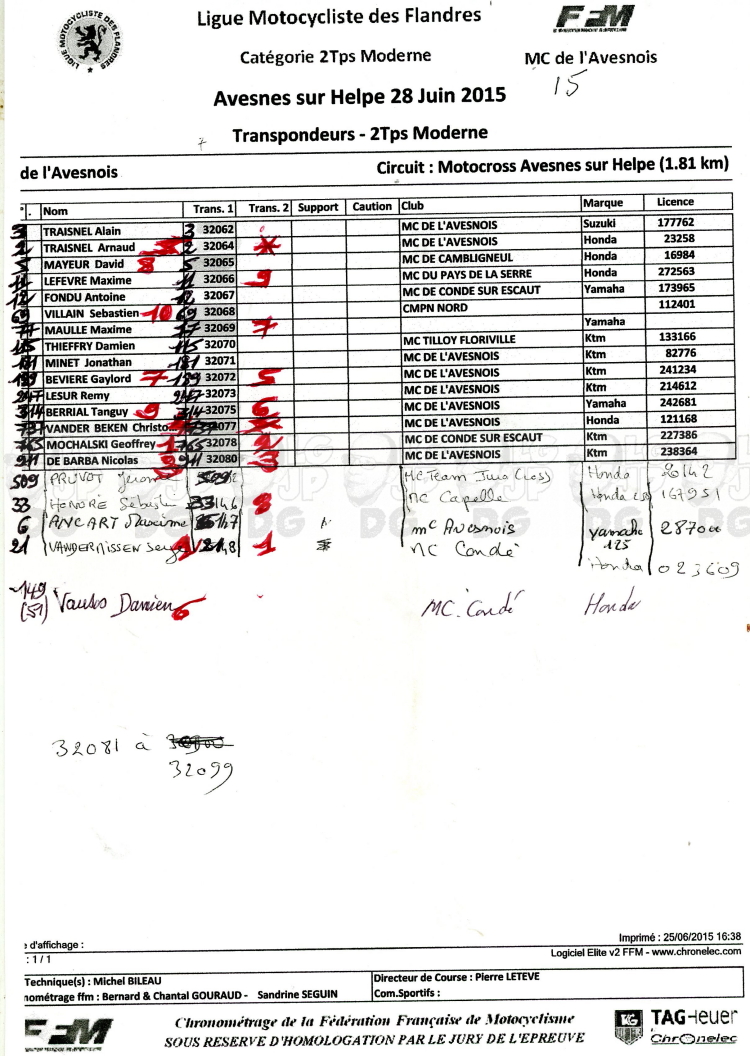 Ligue Motocycliste des Flandres
LIGUE MOTOCYCLISTE DES FLANDRES
FFM
Catégorie 2Tps Moderne
MC de l'Avesnois
15
Avesnes sur Helpe 28 Juin 2015
7
Transpondeurs - 2Tps Moderne
de l'Avesnois Circuit : Motocross Avesnes sur Helpe (1.81 km)
Nom Trans. 1 Trans. 2 Support Caution Club Marque Licence
3 TRAISNEL Alain 3 32062 MC DE L'AVESNOIS Suzuki 177762
2 TRAISNEL Arnaud 2 32064 MC DE L'AVESNOIS Honda 23258
5 MAYEUR David 8 5 32065 MC DE CAMBLIGNEUL Honda 16984
11 LEFEVRE Maxime 11 32066 9 MC DU PAYS DE LA SERRE Honda 272563
12 FONDU Antoine 12 32067 MC DE CONDE SUR ESCAUT Yamaha 173965
69 VILLAIN Sebastien 10 69 32068 CMPN NORD 112401
77 MAULLE Maxime 77 32069 7 Yamaha
115 THIEFFRY Damien 115 32070 MC TILLOY FLORIVILLE Ktm 133166
181 MINET Jonathan 181 32071 MC DE L'AVESNOIS Ktm 82776
199 BEVIERE Gaylord 7 199 32072 5 MC DE L'AVESNOIS Ktm 241234
247 LESUR Remy 247 32073 MC DE L'AVESNOIS Ktm 214612
314 BERRIAL Tanguy 9 314 32075 6 MC DE L'AVESNOIS Yamaha 242681
737 VANDER BEKEN Christo... 737 32077 MC DE L'AVESNOIS Honda 121168
765 MOCHALSKI Geoffrey 1 765 32078 2 MC DE CONDE SUR ESCAUT Ktm 227386
911 DE BARBA Nicolas 911 32080 3 MC DE L'AVESNOIS Ktm 238364
509 PRUVOT Jerome MC Team Honda 26142
33 HONORE Sebastien 33146 8 MC Capelle Honda 167951
6 ANCART Maxime mc Avesnois yamaha 125 28700
21 VANDERNISSEN Serge 1 MC Condé Honda 023609
149
(51) Damien 6 MC. Condé Honda
32081 à
32099
Imprimé : 25/06/2015 16:38
d'affichage :
: 1 / 1 Logiciel Elite v2 FFM - www.chronelec.com
Technique(s) : Michel BILEAU Directeur de Course : Pierre LETEVE
nométrage ffm : Bernard & Chantal GOURAUD - Sandrine SEGUIN Com.Sportifs :
Chronométrage de la Fédération Française de Motocyclisme
SOUS RESERVE D'HOMOLOGATION PAR LE JURY DE L'EPREUVE
FFM
TAGHeuer
Chronelec